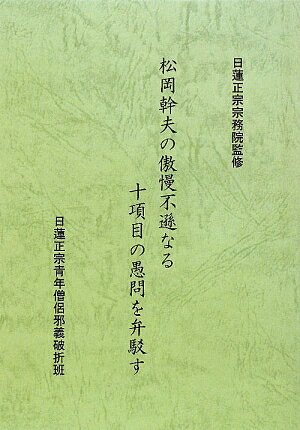 日蓮正宗宗務院監修
松岡幹夫の傲慢不遜なる
十項目の愚問を弁駁す
日蓮正宗青年僧侶邪義破折班